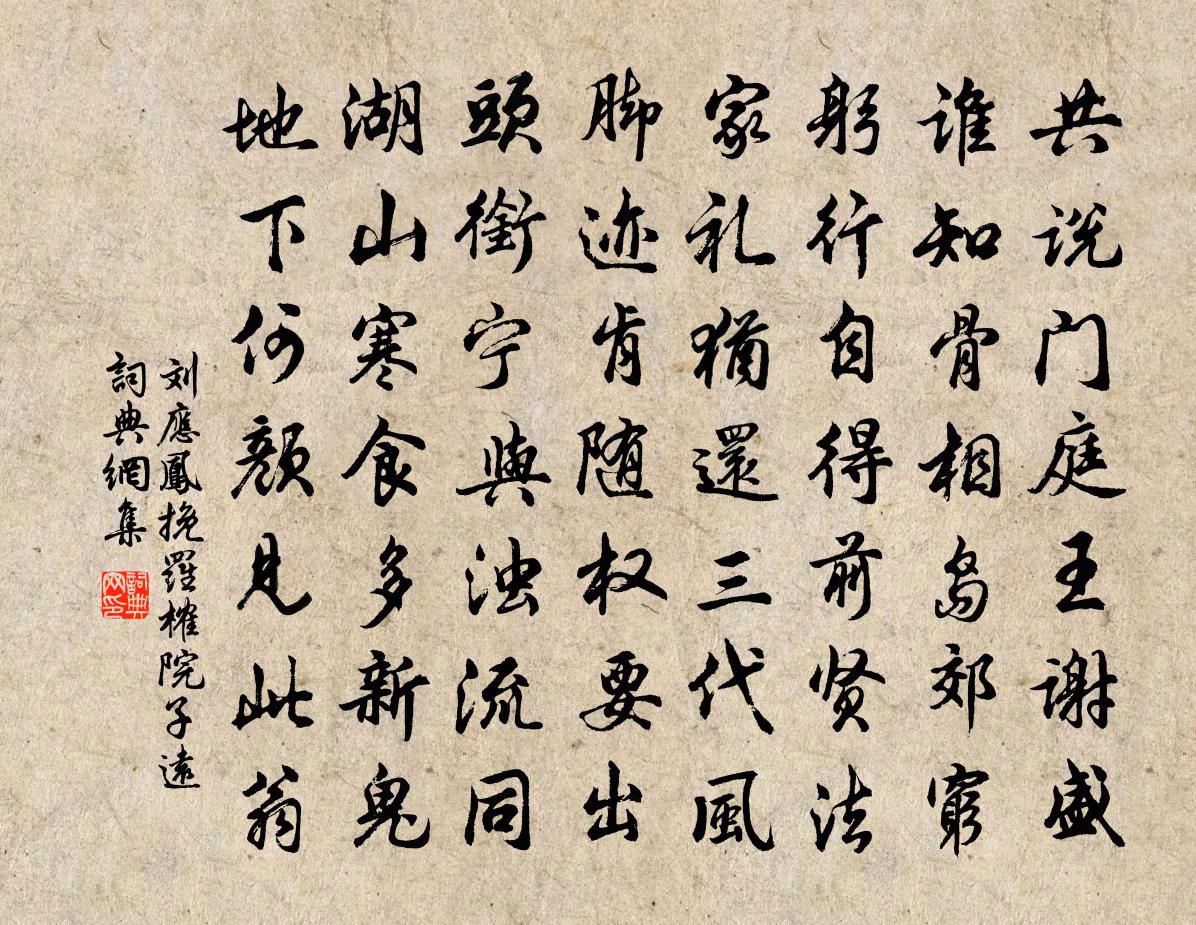 共说门庭王谢盛
谁知骨相岛郊穷
躬行自得前贤法
家礼犹還三代風
脚迹肯随权要出
頭銜宁與浊流同
湖山寒食多新鬼
地下何颜見此翁
刘應鳳挽羅榷院子遠
詞典網集
詞典网印